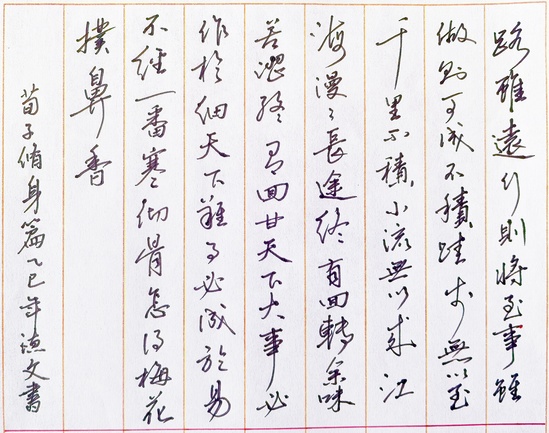 路雖遠行則將至事雖
做則可成不積跬步無以至
千里不積小流無以成江
海漫漫長途終有回轉余味
苦澀終有回甘天下大事必
作於細天下難事必成於易
不經一番寒徹骨怎得梅花
撲鼻香
荀子脩身篇乙巳年 文書